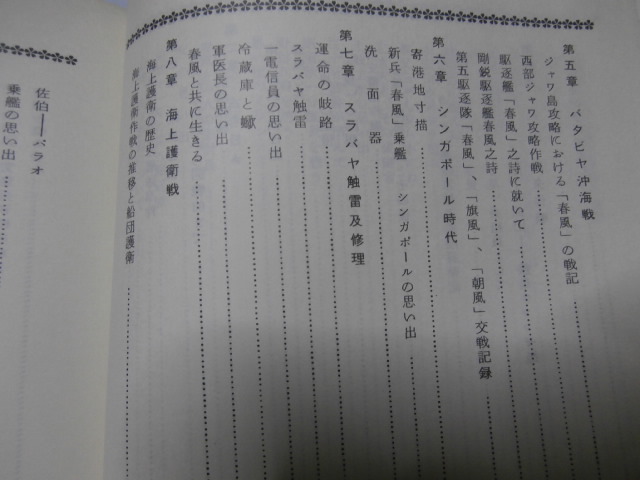 第五章　バタビヤ沖海戦
ジャワ島攻略における「春風」の戦記
西部ジャワ攻略作戦
駆逐艦「春風」之詩に就いて
剛鋭駆逐艦春風之詩
第五駆逐隊「春風」、「旗風」、「朝風」交戦記録
第六章　シンガポール時代
寄港地寸描
新兵「春風」乗艦　シンガポールの思い出
洗面器
第七章　スラバヤ触雷及修理
運命の岐路
スラバヤ触雷
一電信員の思い出
冷蔵庫と蠍
軍医長の思い出
春風と共に生きる
第八章　海上護衛戦
海上護衛の歴史
海上護衛作戦の推移と船団護衛
佐伯――パラオ
乗艦の思い出